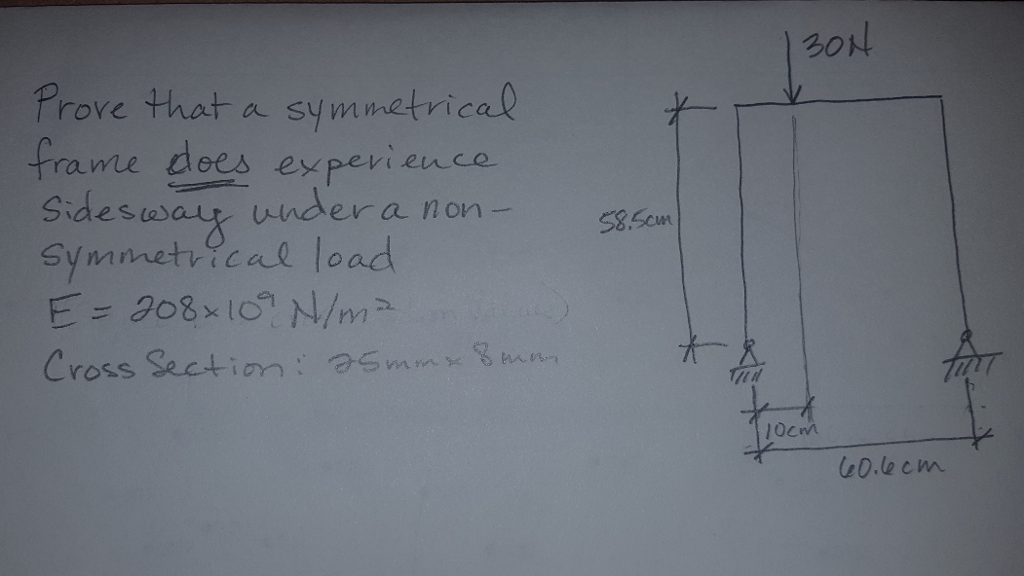 Prove that a symmetrical
frame does experience
Sidesway under a non-
symmetrical load
E = 208×10⁹ N/m²
Cross Section: 25mm × 8mm
30N
58.5cm
10cm
60.6cm